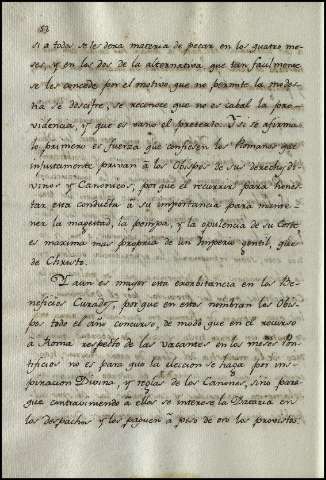 si a todos se les dexa materia de pecar en los quatro me-
ses, y en los dos de la alternativa que tan facilmente
se les concede por el motivo que no permite la modes-
tia de descifre, se reconoce que no es cabal la pro-
videncia, y que es vano el pretexto. Y si se afirma
lo primero es fuerza que confiesen los Romanos que
injustamente privan â los Obispos de sus derechos di-
vinos y Canonicos, porque el recurrir para hones-
tar esta conducta â su importancia para mante-
ner la magestad, la pompa, y la opulencia de su Corte
es maxima mas propria de un Imperio gentil, que
de Christo.
Y aun es mayor esta exorbitancia en los Be-
neficios Curados, porque en estos nombran los Obis-
pos todo el año concurso, de modo que en el recurso
a Roma respecto de las vacantes en los meses Pon-
tificios no es para que la eleccion se haga por ins-
piracion Divina, y reglas de los Canones, sino para
que contraviniendo â ellos se interese la Dataria en
los despachos y los paguen â peso de oro los provistos.